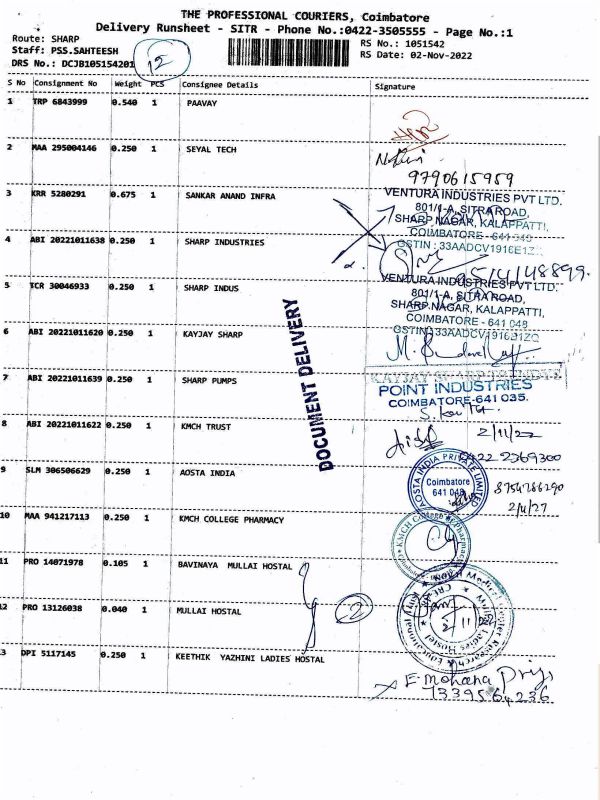 THE PROFESSIONAL COURIERS, Coimbatore
Delivery Runsheet - SITR - Phone No.:0422-3505555 - Page No.:1
Route: SHARP
Staff: PSS.SAHTEESH
DRS No.: DCJB105154201
12
RS No.: 1051542
RS Date: 02-Nov-2022
S No Consignment No Weight PCS Consignee Details Signature
1 TRP 6843999 0.540 1 PAAVAY
2 MAA 295004146 0.250 1 SEYAL TECH
9790615959
3 KRR 5280291 0.675 1 SANKAR ANAND INFRA
VENTURA INDUSTRIES PVT LTD.
801/1-A, SITRA ROAD,
SHARP NAGAR, KALAPPATTI,
COIMBATORE - 641 048
GSTIN : 33AADCV1916E1ZQ
4 ABI 20221011638 0.250 1 SHARP INDUSTRIES
5 TCR 30046933 0.250 1 SHARP INDUS
VENTURA INDUSTRIES PVT LTD.
801/1-A, SITRA ROAD,
SHARP NAGAR, KALAPPATTI,
COIMBATORE - 641 048
GSTIN : 33AADCV1916E1ZQ
6 ABI 20221011620 0.250 1 KAYJAY SHARP
DOCUMENT DELIVERY
7 ABI 20221011639 0.250 1 SHARP PUMPS
POINT INDUSTRIES
COIMBATORE-641 035.
8 ABI 20221011622 0.250 1 KMCH TRUST
2/11/22
0422 2369300
9 SLM 306506629 0.250 1 AOSTA INDIA
AOSTA INDIA PRIVATE LIMITED
Coimbatore
641 048
8754786290
10 MAA 941217113 0.250 1 KMCH COLLEGE PHARMACY
KMCH College of Pharmacy
11 PRO 14071978 0.105 1 BAVINAYA MULLAI HOSTAL
12 PRO 13126038 0.040 1 MULLAI HOSTAL
2
Ladies Hostel
13 DPI 5117145 0.250 1 KEETHIK YAZHINI LADIES HOSTAL
E. Mohana Priya
7339564236